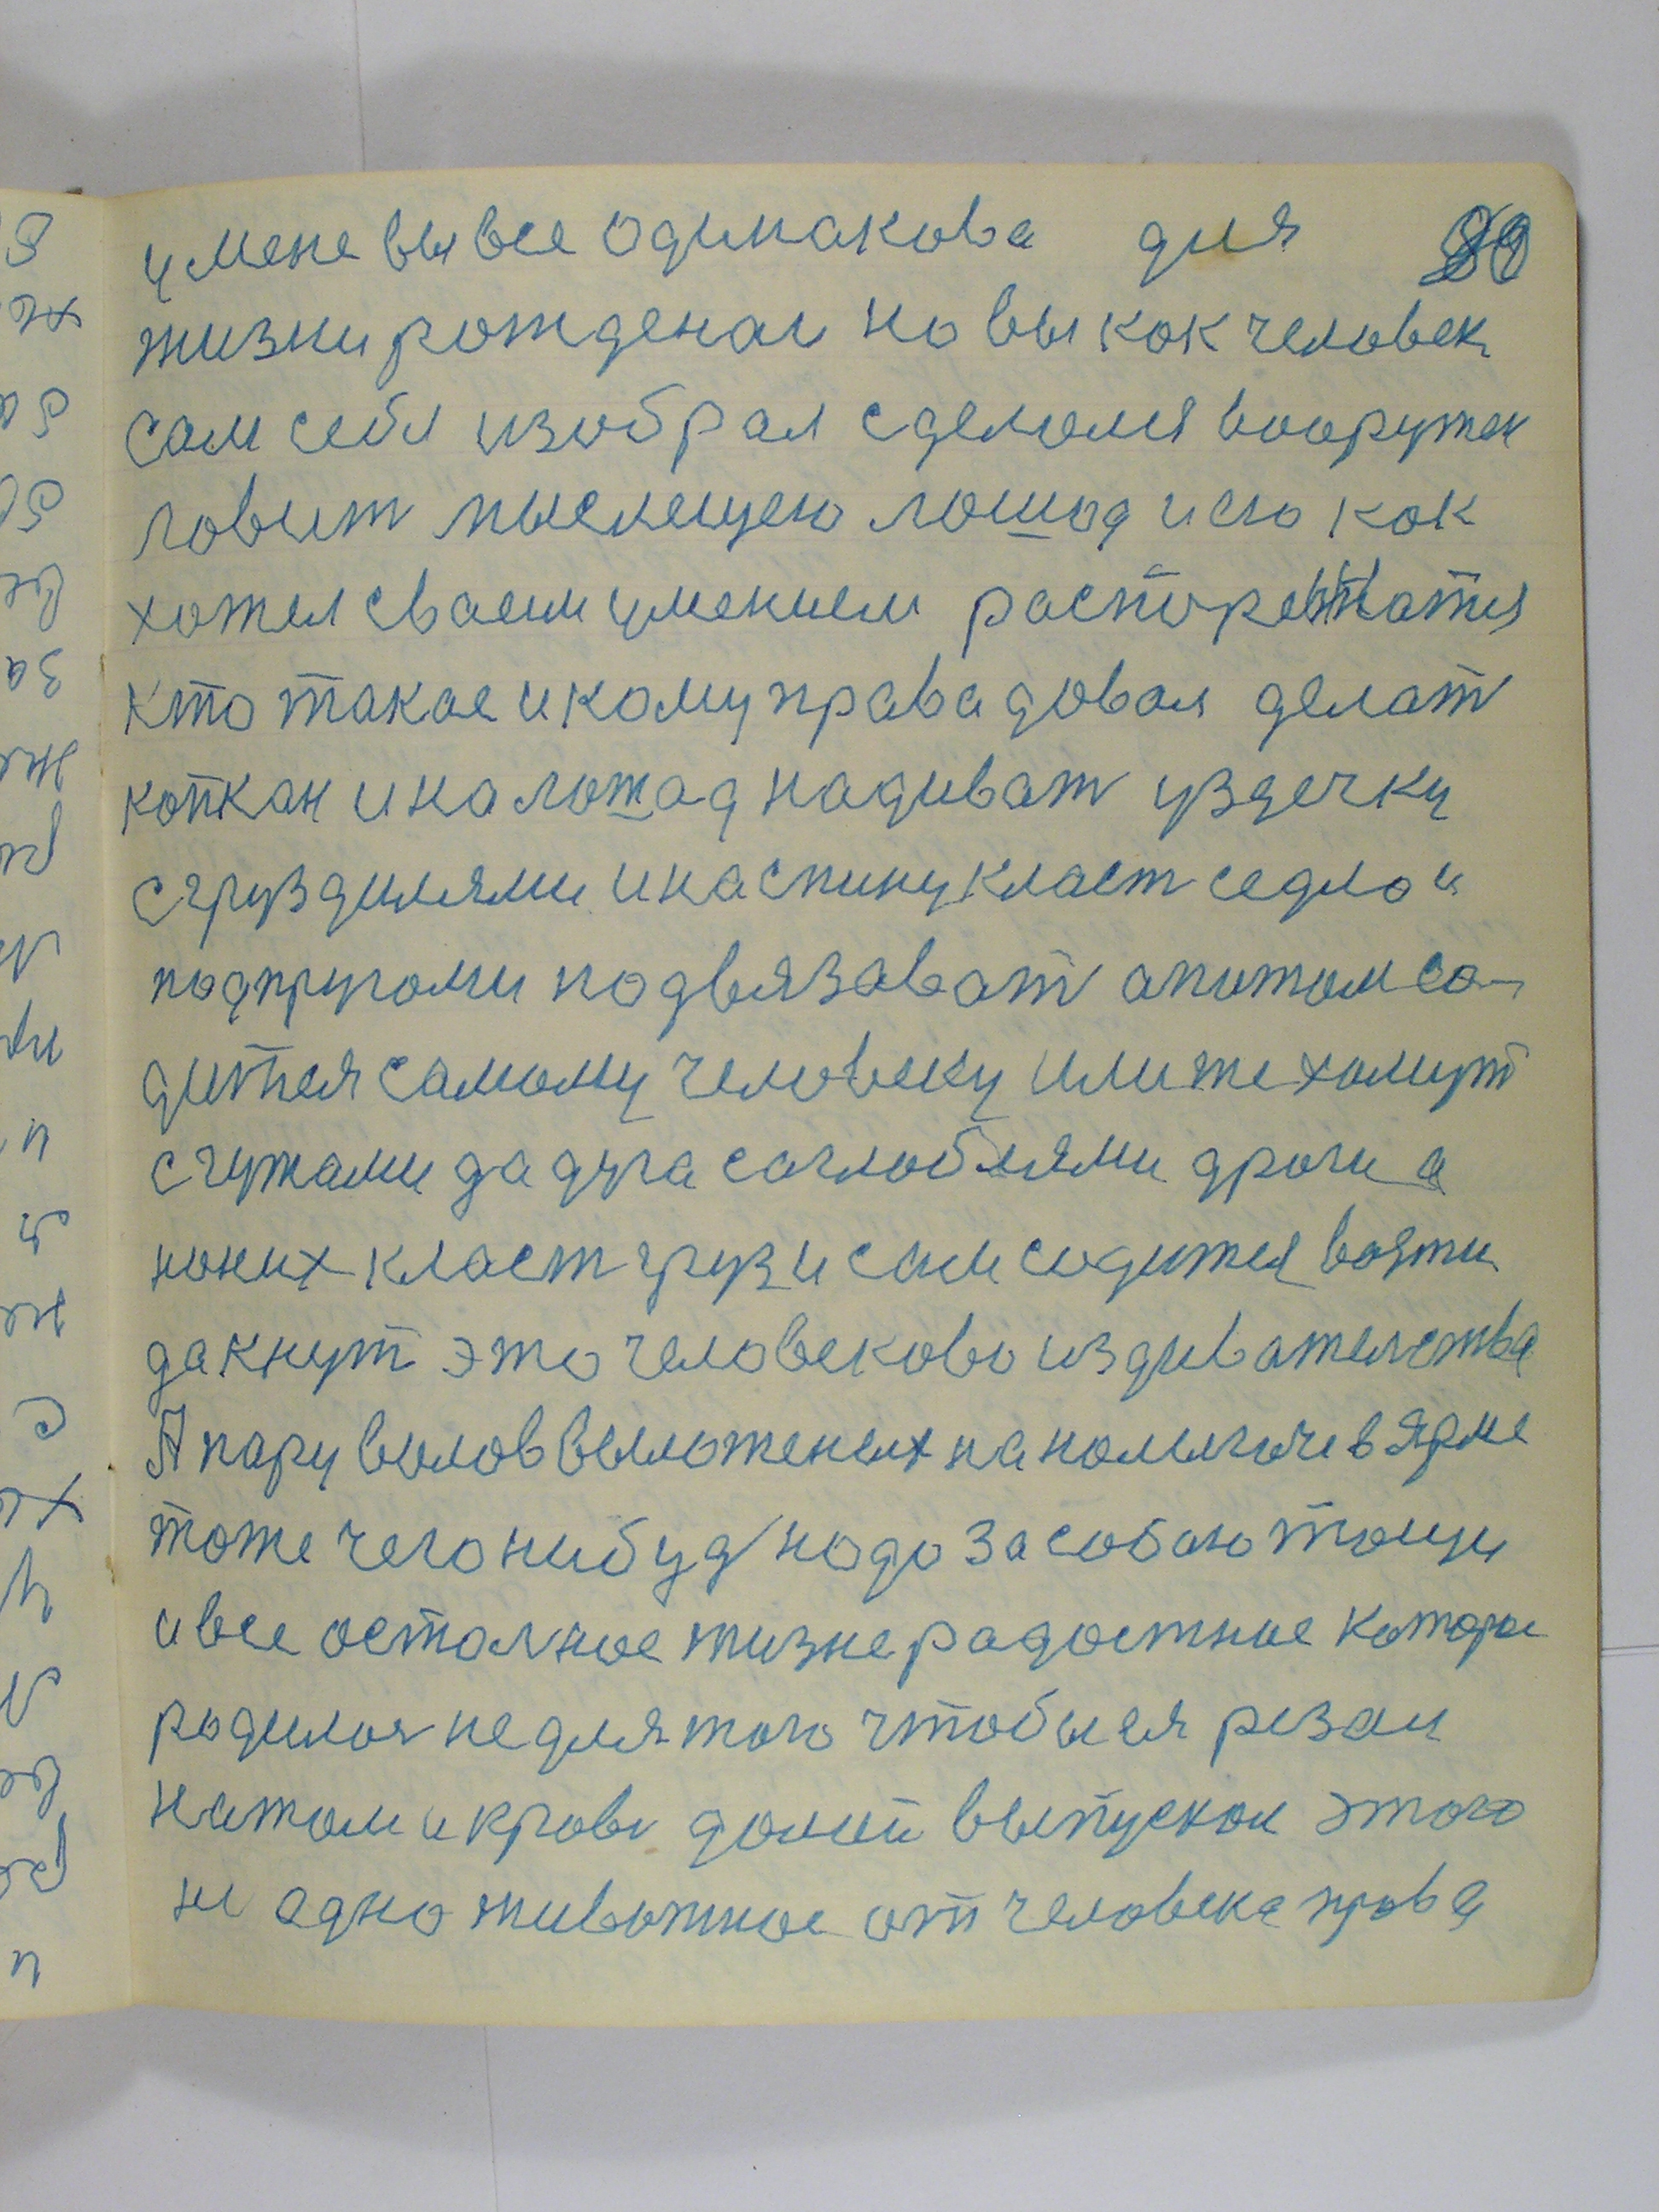 у мене вы все одинакова для
жизни рождена но вы как человек
сам себя изобрал сделался вооружен
ловит мыслящею лошад и его как
хотел сваем умением распоряжатся
кто такое и кому права довал делат
копкан и на лошад надиват уздечку
с груздилями и на спину класт седло и
подпругами подвязават а потом са-
дится самому человеку или же хомут
с гужами да дуга с аглоблями дроги а
на них класт груз и сами садится вожжи
да кнут это человеково издивателства
А пару волов выложеных на налыгаче в ярме
тоже чего нибуд надо за собою тащи
и все осталное жизнерадостное каторое
родилося не для того чтобы ея резали
на том и крови долий выпускал этого
не адно животное от человека права